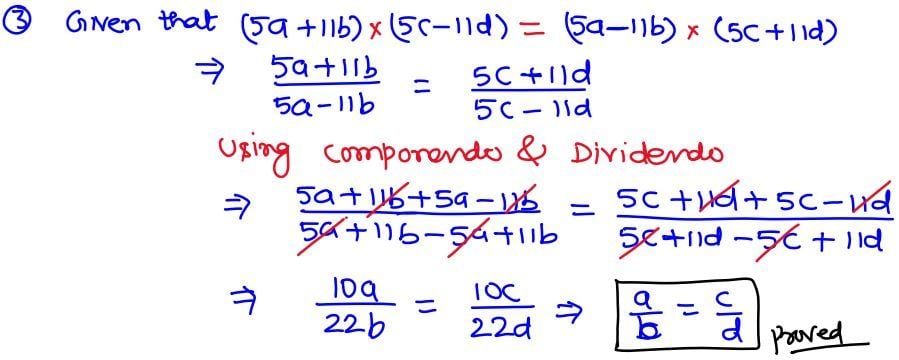 ③ Given that (5a+11b) × (5c-11d) = (5a-11b) × (5c+11d)
⇒ 5a+11b / 5a-11b = 5c+11d / 5c-11d
Using Componendo & Dividendo
⇒ 5a+11b+5a-11b / 5a+11b-5a+11b = 5c+11d+5c-11d / 5c+11d-5c+11d
⇒ 10a / 22b = 10c / 22d ⇒ a / b = c / d proved